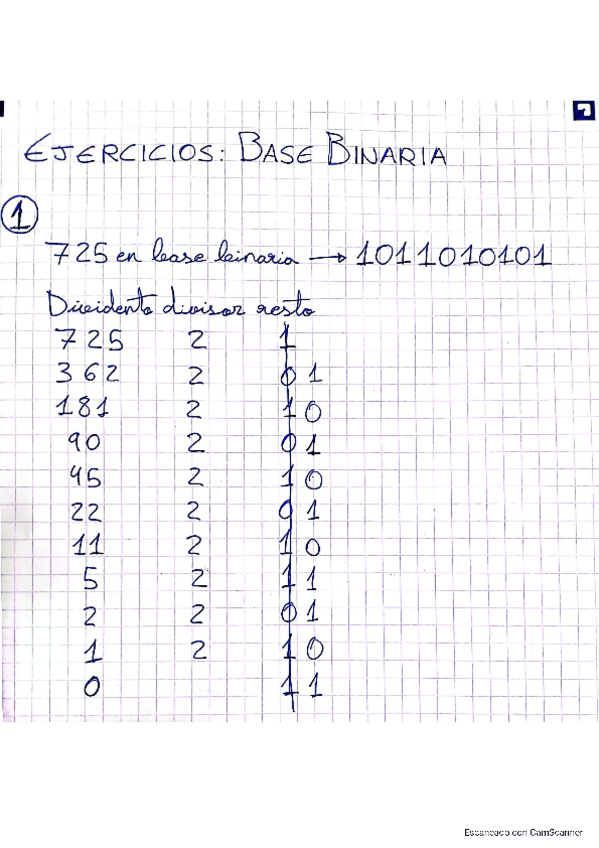 EJERCICIOS: BASE BINARIA
1
725 en base binaria → 1011010101
Dividento divisor resto
725 2 1
362 2 0 1
181 2 1 0
90 2 0 1
45 2 1 0
22 2 0 1
11 2 1 0
5 2 1 1
2 2 0 1
1 2 1 0
0 1 1
Escaneado con CamScanner